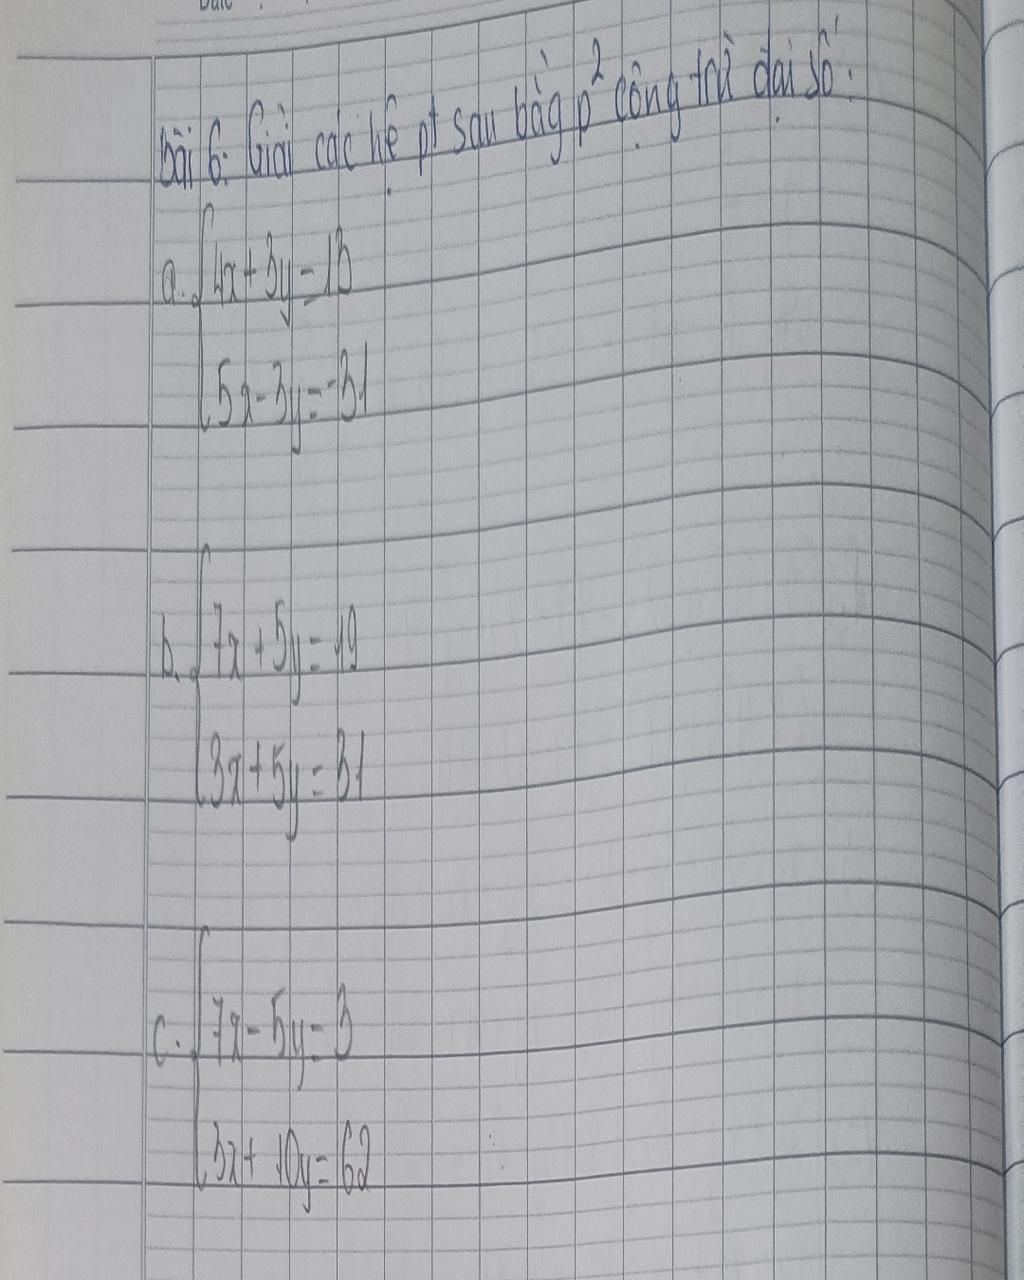 Date
bài 6: Giải các hệ pt sau bằg p² cộng trừ đại số.
a. 4x + 3y = 13
5x - 3y = -31
b. 7x + 5y = 19
3x + 5y = 31
c. 7x - 5y = 3
3x + 10y = 62